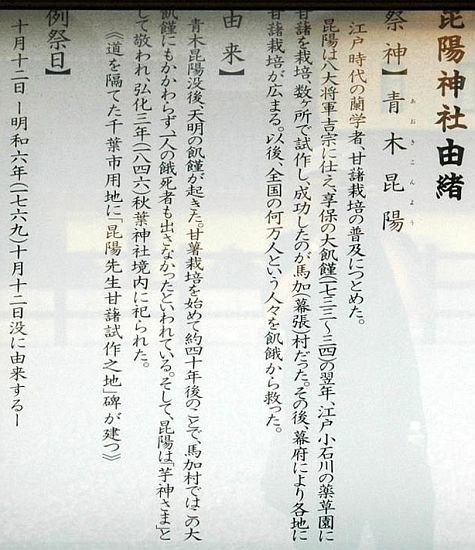 昆陽神社由緒
祭神】青木昆陽
あおきこんよう
江戸時代の蘭学者、甘藷栽培の普及につとめた。
昆陽は八大将軍吉宗に仕え、享保の大飢饉(七三三〜三四)の翌年、江戸小石川の薬草園に
甘藷を栽培、数ヶ所で試作し、成功したのが馬加(幕張)村だった。その後、幕府により各地に
甘藷栽培が広まる。以後、全国の何万人という人々を飢餓から救った。
由来】
青木昆陽没後、天明の飢饉が起きた。甘薯栽培を始めて約四十年後のことで、馬加村ではこの大
飢饉にもかかわらず一人の餓死者も出さなかったといわれている。そして、昆陽は「芋神さま」と
して敬われ、弘化三年(一八四六)秋葉神社境内に祀られた。
《道を隔てた千葉市用地に「昆陽先生甘藷試作之地」碑が建つ》
例祭日】
十月十二日ー明和六年(一七六九)十月十二日没に由来するー